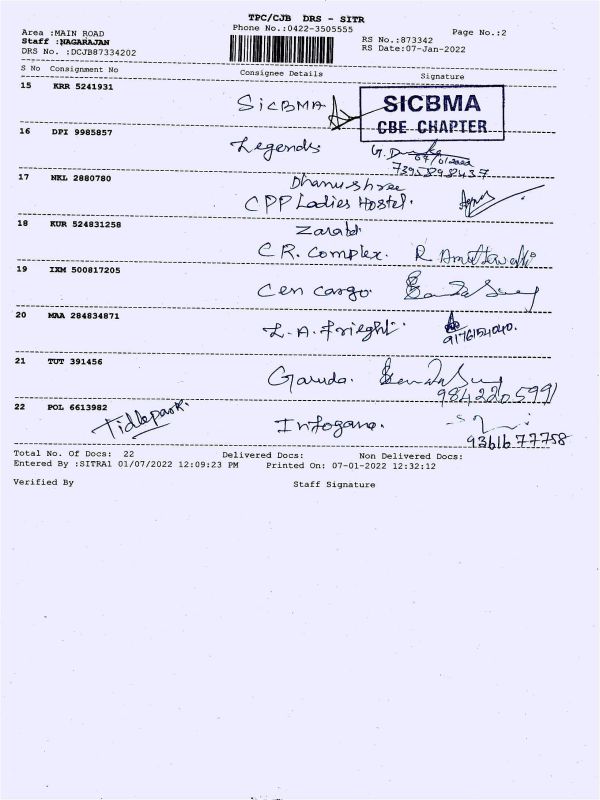 TPC/CJB DRS - SITR
Phone No.:0422-3505555
Page No.:2
Area :MAIN ROAD
Staff :NAGARAJAN
DRS No. :DCJB87334202
RS No.:873342
RS Date:07-Jan-2022
S No Consignment No Consignee Details Signature
15 KRR 5241931 SICBMA
SICBMA
CBE CHAPTER
16 DPI 9985857 Legends
04/01/2022
7395898437
17 NKL 2880780 Dhanushree
CPP Ladies Hostel.
18 KUR 524831258
CR. Complex.
19 IXM 500817205 Cen cargo.
20 MAA 284834871 L.A. Frieght.
9176154040.
21 TUT 391456 Garuda.
9842205991
22 POL 6613982 Tidlepark. Infogana.
9361677758
Total No. Of Docs: 22 Delivered Docs: Non Delivered Docs:
Entered By :SITRA1 01/07/2022 12:09:23 PM Printed On: 07-01-2022 12:32:12
Verified By Staff Signature